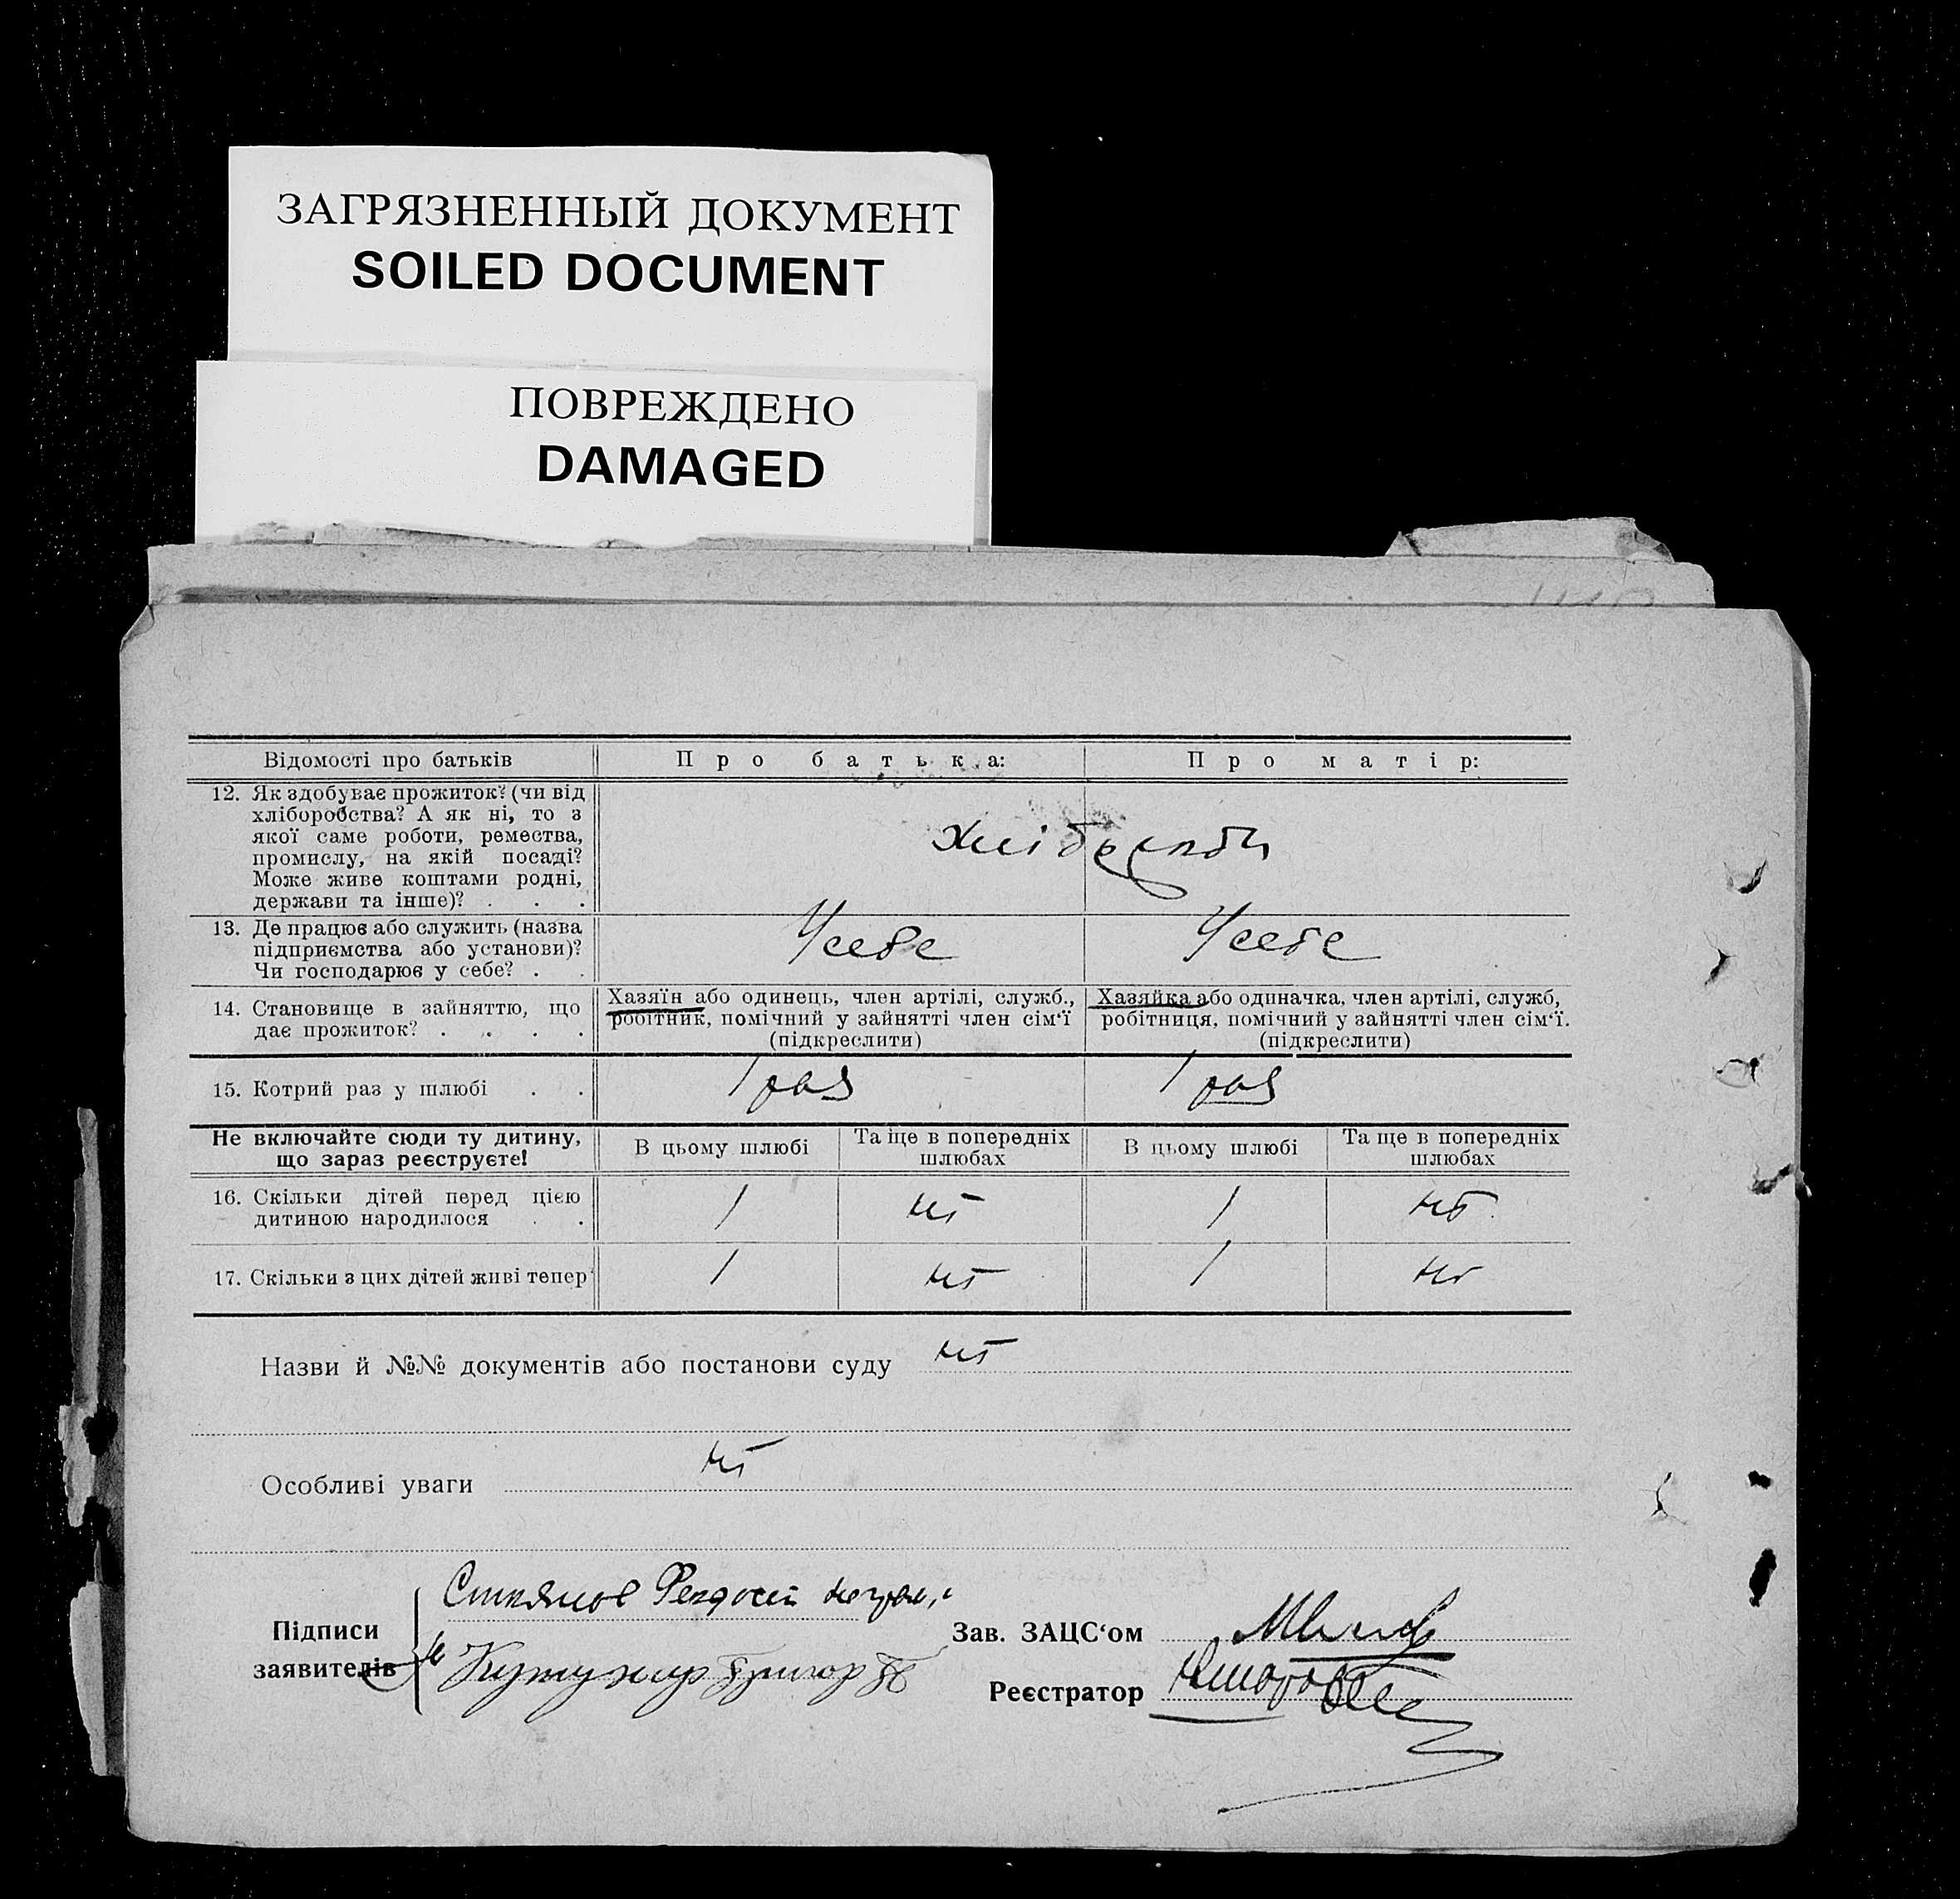 ЗАГРЯЗНЕННЫЙ ДОКУМЕНТ
SOILED DOCUMENT
ПОВРЕЖДЕНО
DAMAGED
Відомості про батьків Про батька: Про матір:
12. Як здобуває прожиток? (чи від
хліборобства? А як ні, то з
якої саме роботи, ремества,
промислу, на якій посаді?
Може живе коштами родні,
держави та інше)? . . .
13. Де працює або служить (назва
підприємства або установи)?
Чи господарює у себе? . .
Усебе Усебе
14. Становище в зайняттю, що
дає прожиток? . . . .
Хазяїн або одинець, член артілі, служб.,
робітник, помічний у зайнятті член сім‘ї
(підкреслити)
Хазяйка або одиначка, член артілі, служб,
робітниця, помічний у зайнятті член сім‘ї.
(підкреслити)
15. Котрий раз у шлюбі . . 1 раз 1 раз
Не включайте сюди ту дитину,
що зараз реєструєте!
В цьому шлюбі Та ще в попередніх
шлюбах
В цьому шлюбі Та ще в попередніх
шлюбах
16. Скільки дітей перед цією
дитиною народилося . .
1 ні 1 ні
17. Скільки з цих дітей живі тепер 1 ні 1 ні
Назви й №№ документів або постанови суду ні
Особливі уваги ні
Підписи
заявителів
Зав. ЗАЦС‘ом
Реєстратор